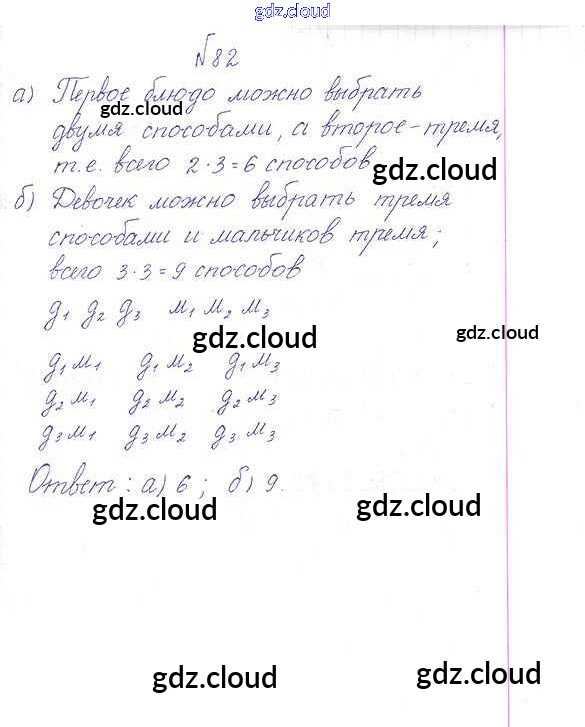 gdz.cloud
№82
а) Первое блюдо можно выбрать
gdz.cloud
двумя способами, а второе - тремя,
т.е. всего 2·3=6 способов
gdz.cloud
б) Девочек можно выбрать тремя
способами и мальчиков тремя;
всего 3·3=9 способов
д1 д2 д3 м1 м2 м3
gdz.cloud gdz.cloud
д1м1 д1м2 д1м3
д2м1 д2м2 д2м3
д3м1 д3м2 д3м3
Ответ: а) 6; б) 9.
gdz.cloud gdz.cloud
gdz.cloud gdz.cloud